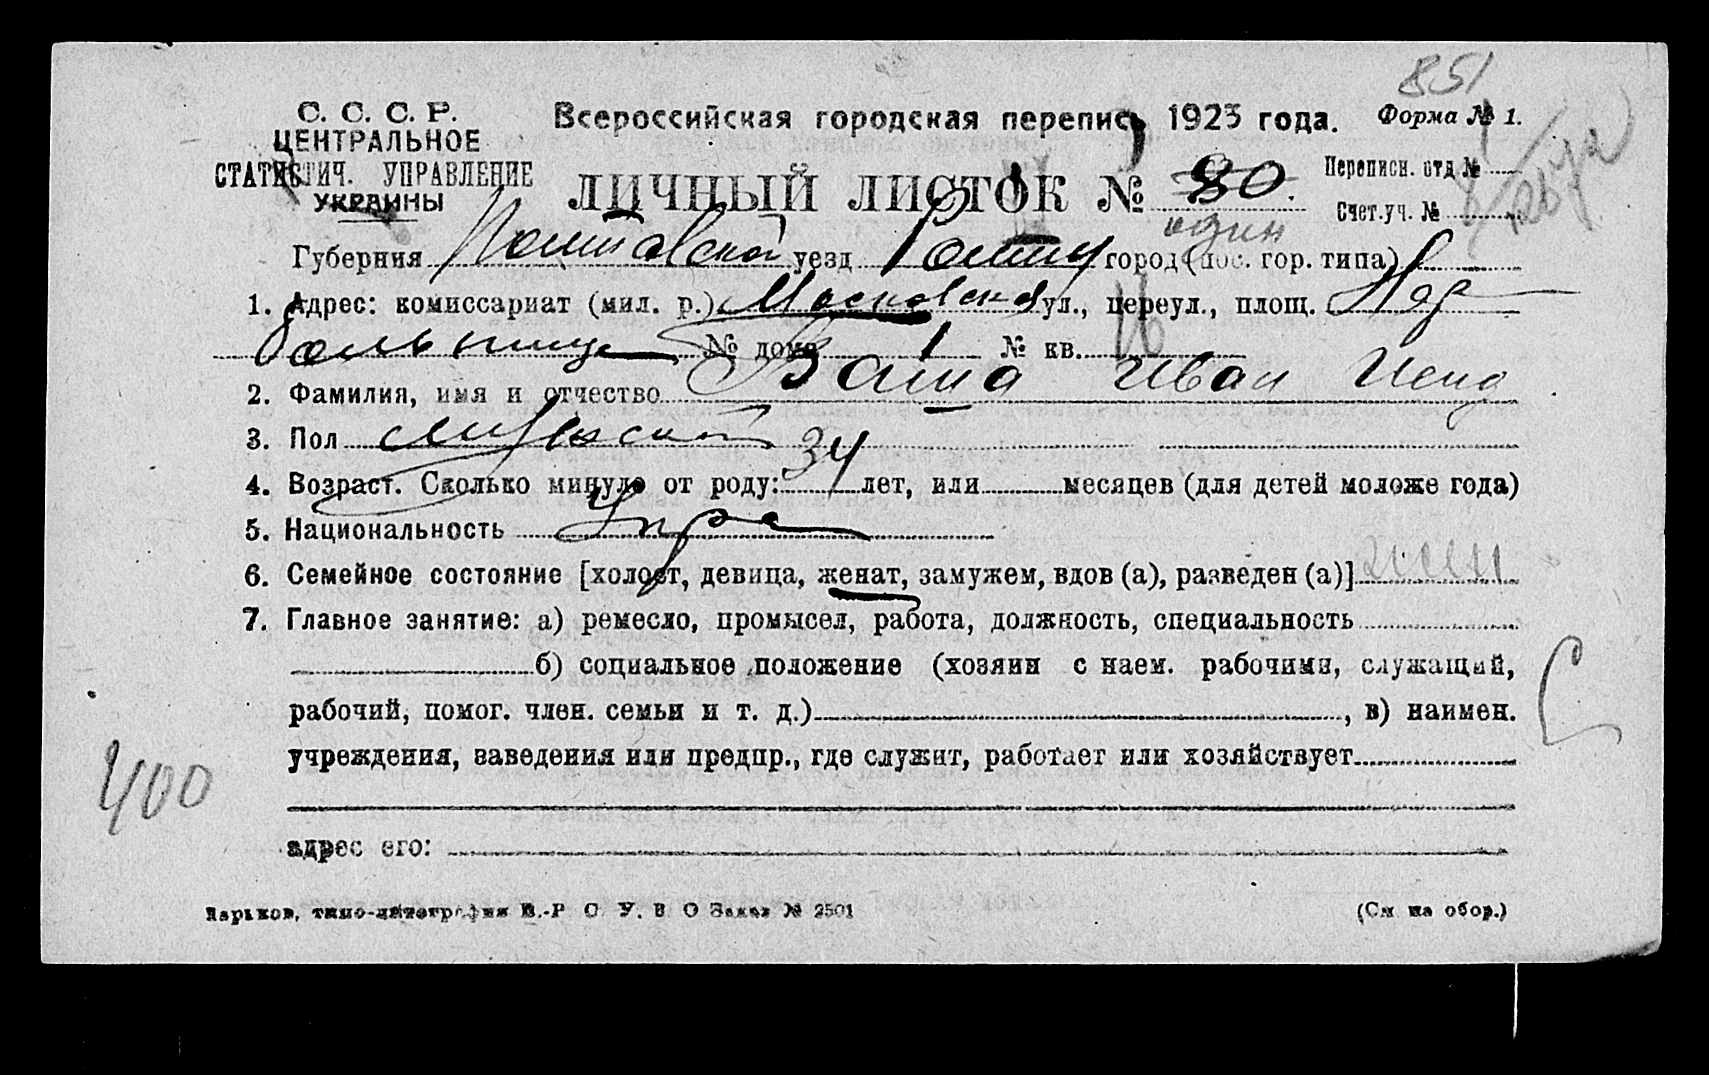 851
С. С. С. Р.
ЦЕНТРАЛЬНОЕ
СТАТИСТИЧ. УПРАВЛЕНИЕ
УКРАИНЫ
Всероссийская городская перепись 1923 года.
Форма № 1.
ЛИЧНЫЙ ЛИСТОК № 80.
Переписн. отд №
Счет.уч. №
один
Губерния Полтавской уезд Ромны город (пос. гор. типа)
1. Адрес: комиссариат (мил. р.) Московская ул., переул., площ. Нар
больница № дома 1 № кв.
2. Фамилия, имя и отчество Иван
3. Пол мужской
4. Возраст. Сколько минуло от роду: 34 лет, или месяцев (для детей моложе года)
5. Национальность Укра
6. Семейное состояние [холост, девица, женат, замужем, вдов (а), разведен (а)]
7. Главное занятие: а) ремесло, промысел, работа, должность, специальность
б) социальное положение (хозяин с наем. рабочими, служащий,
рабочий, помог. член. семьи и т. д.) , в) наимен.
учреждения, заведения или предпр., где служит, работает или хозяйствует
400
адрес его:
Харьков, типо-литография В.-Р О. У. В О Заказ № 2501
(См на обор.)